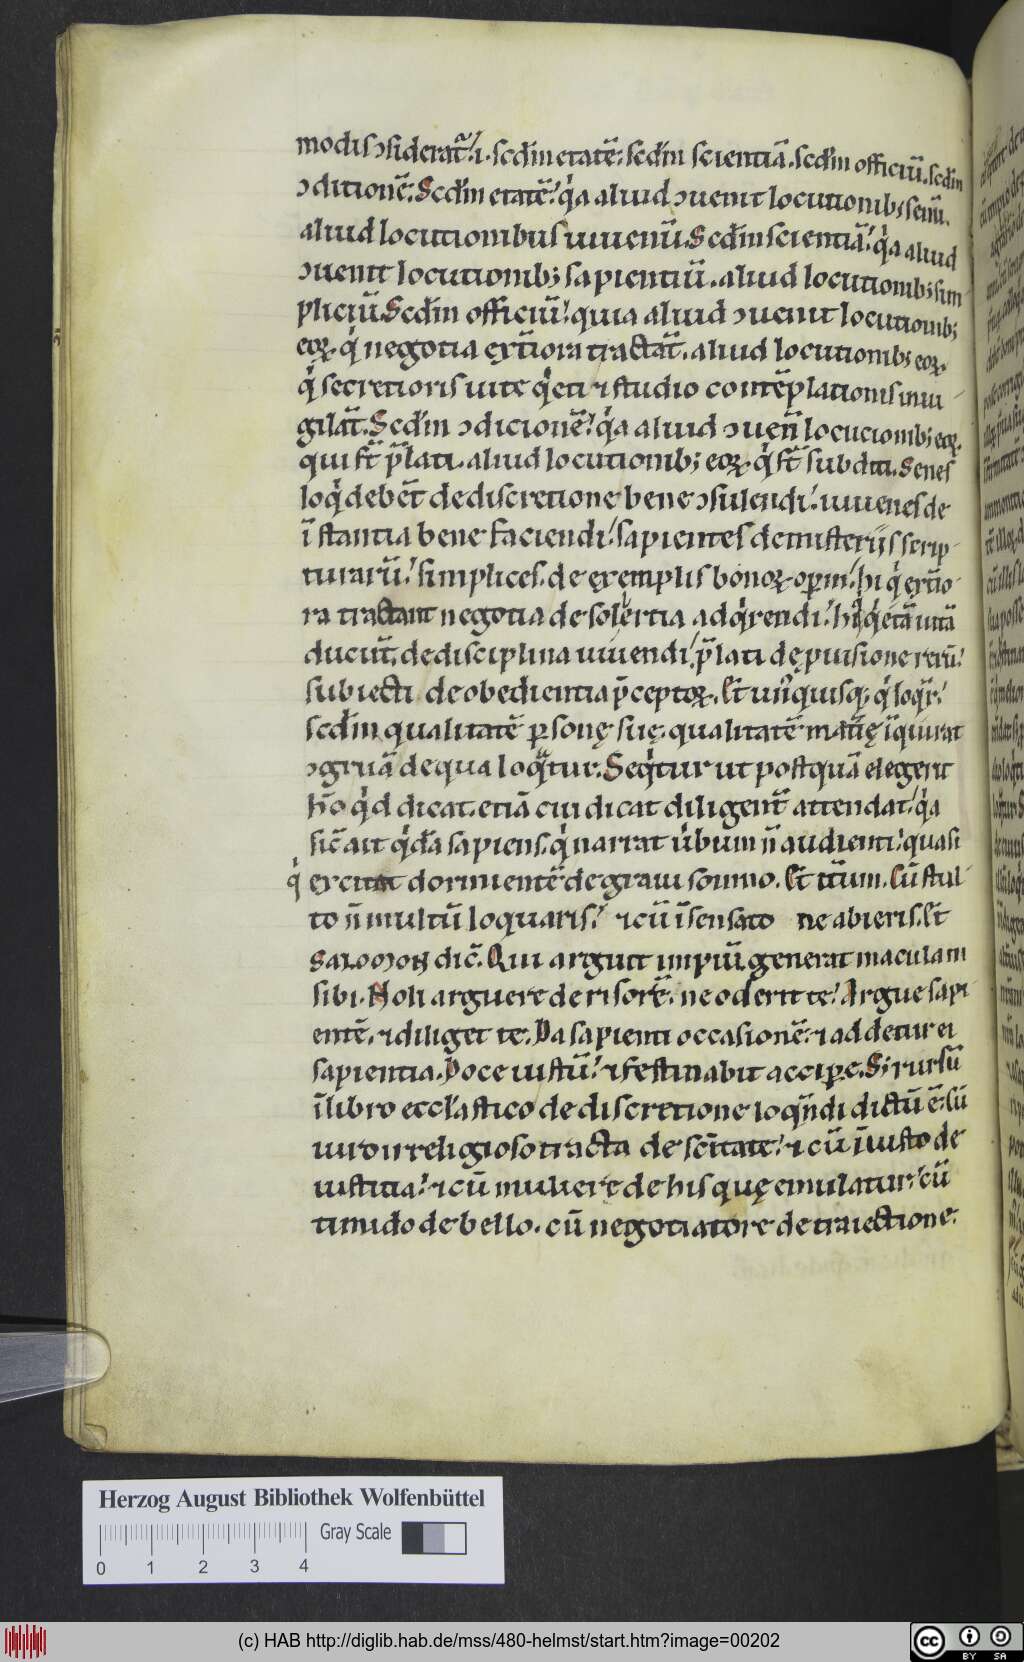 modis ↄsiderat᷑. i. scd̄m etatē. scd̄m scientiā. scd̄m officiū. scd̄m
ↄditionē. Scd̄m etatē. qͥa aliud ↄuenit locutionib; senū.
aliud locutionibus iuuenū. Scd̄m scientiā. qͥa aliud
ↄuenit locutionib; sapientiū. aliud locutionib; sim
pliciū. Scd̄m officiū. quia aliud ↄuenit locutionib;
eoꝝ. qͥ negotia ext̄iora tractāt. aliud locutionib; eoꝝ.
qͥ secretioris uite qͥeti ⁊ studio contēplationis inui
gilāt. Scd̄m ↄdicionē. qͥa aliud ↄuen̄ locucionib; eoꝝ.
qui st̄ p̄lati. aliud locutionib; eoꝝ. qͥ st̄ subditi. Senes
loqͥ debēt de discretione bene ↄsulendi. iuuenes de
īstantia bene faciendi. sapientes de misterijs scrip
turarū. simplices. de exemplis bonoꝝ opm̄. hi qͥ ext̄io
ra tractant negotia de solertia adqͥrendi. hi qͥ qͥetā uitā
ducūt. de disciplina uiuendi. p̄lati de ꝓuisione rerū.
subiecti de obedientia p̄ceptoꝝ. Et̄ unͦquisq; qͥ loqͥt᷑.
scd̄m qualitatē ꝑsonę suę. qualitatē mat̄ię īquirat
ↄgruā de qua loqͥtur. Seqͥtur ut postquā elegerit
hō qͥd dicat. etiā cui dicat diligent̄ attendat. qͥa
sic̄ ait qͥdā sapiens. qͥ narrat u̓bum n̄ audienti. quasi
qͥ excitat dormientē de graui somno. Et̄ it̄um. Cū stul
to n̄ multū loquaris. ⁊ cū īsensato ne abieris. Et̄
SALOMON dic̄. Qui arguit impiū. generat maculam
sibi. Noli arguere derisorē. ne oderit te. Argue sapi
entē. ⁊ diliget te. Da sapienti occasionē. ⁊ addetur ei
sapientia. Doce iustū. ⁊ festinabit accipe̱. S; rursū
ī libro eccl̓astico de discretione loqͥndi dictū ē. Cū
uiro irreligioso tracta de sc̄itate. ⁊ cū īiusto de
iustitia. ⁊ cū muliere de his quę emulatur. cū
timido de bello. cū negotiatore de traiectione.
Herzog August Bibliothek Wolfenbüttel
Gray Scale
0 1 2 3 4
(c) HAB http://diglib.hab.de/mss/480-helmst/start.htm?image=00202
cc BY SA